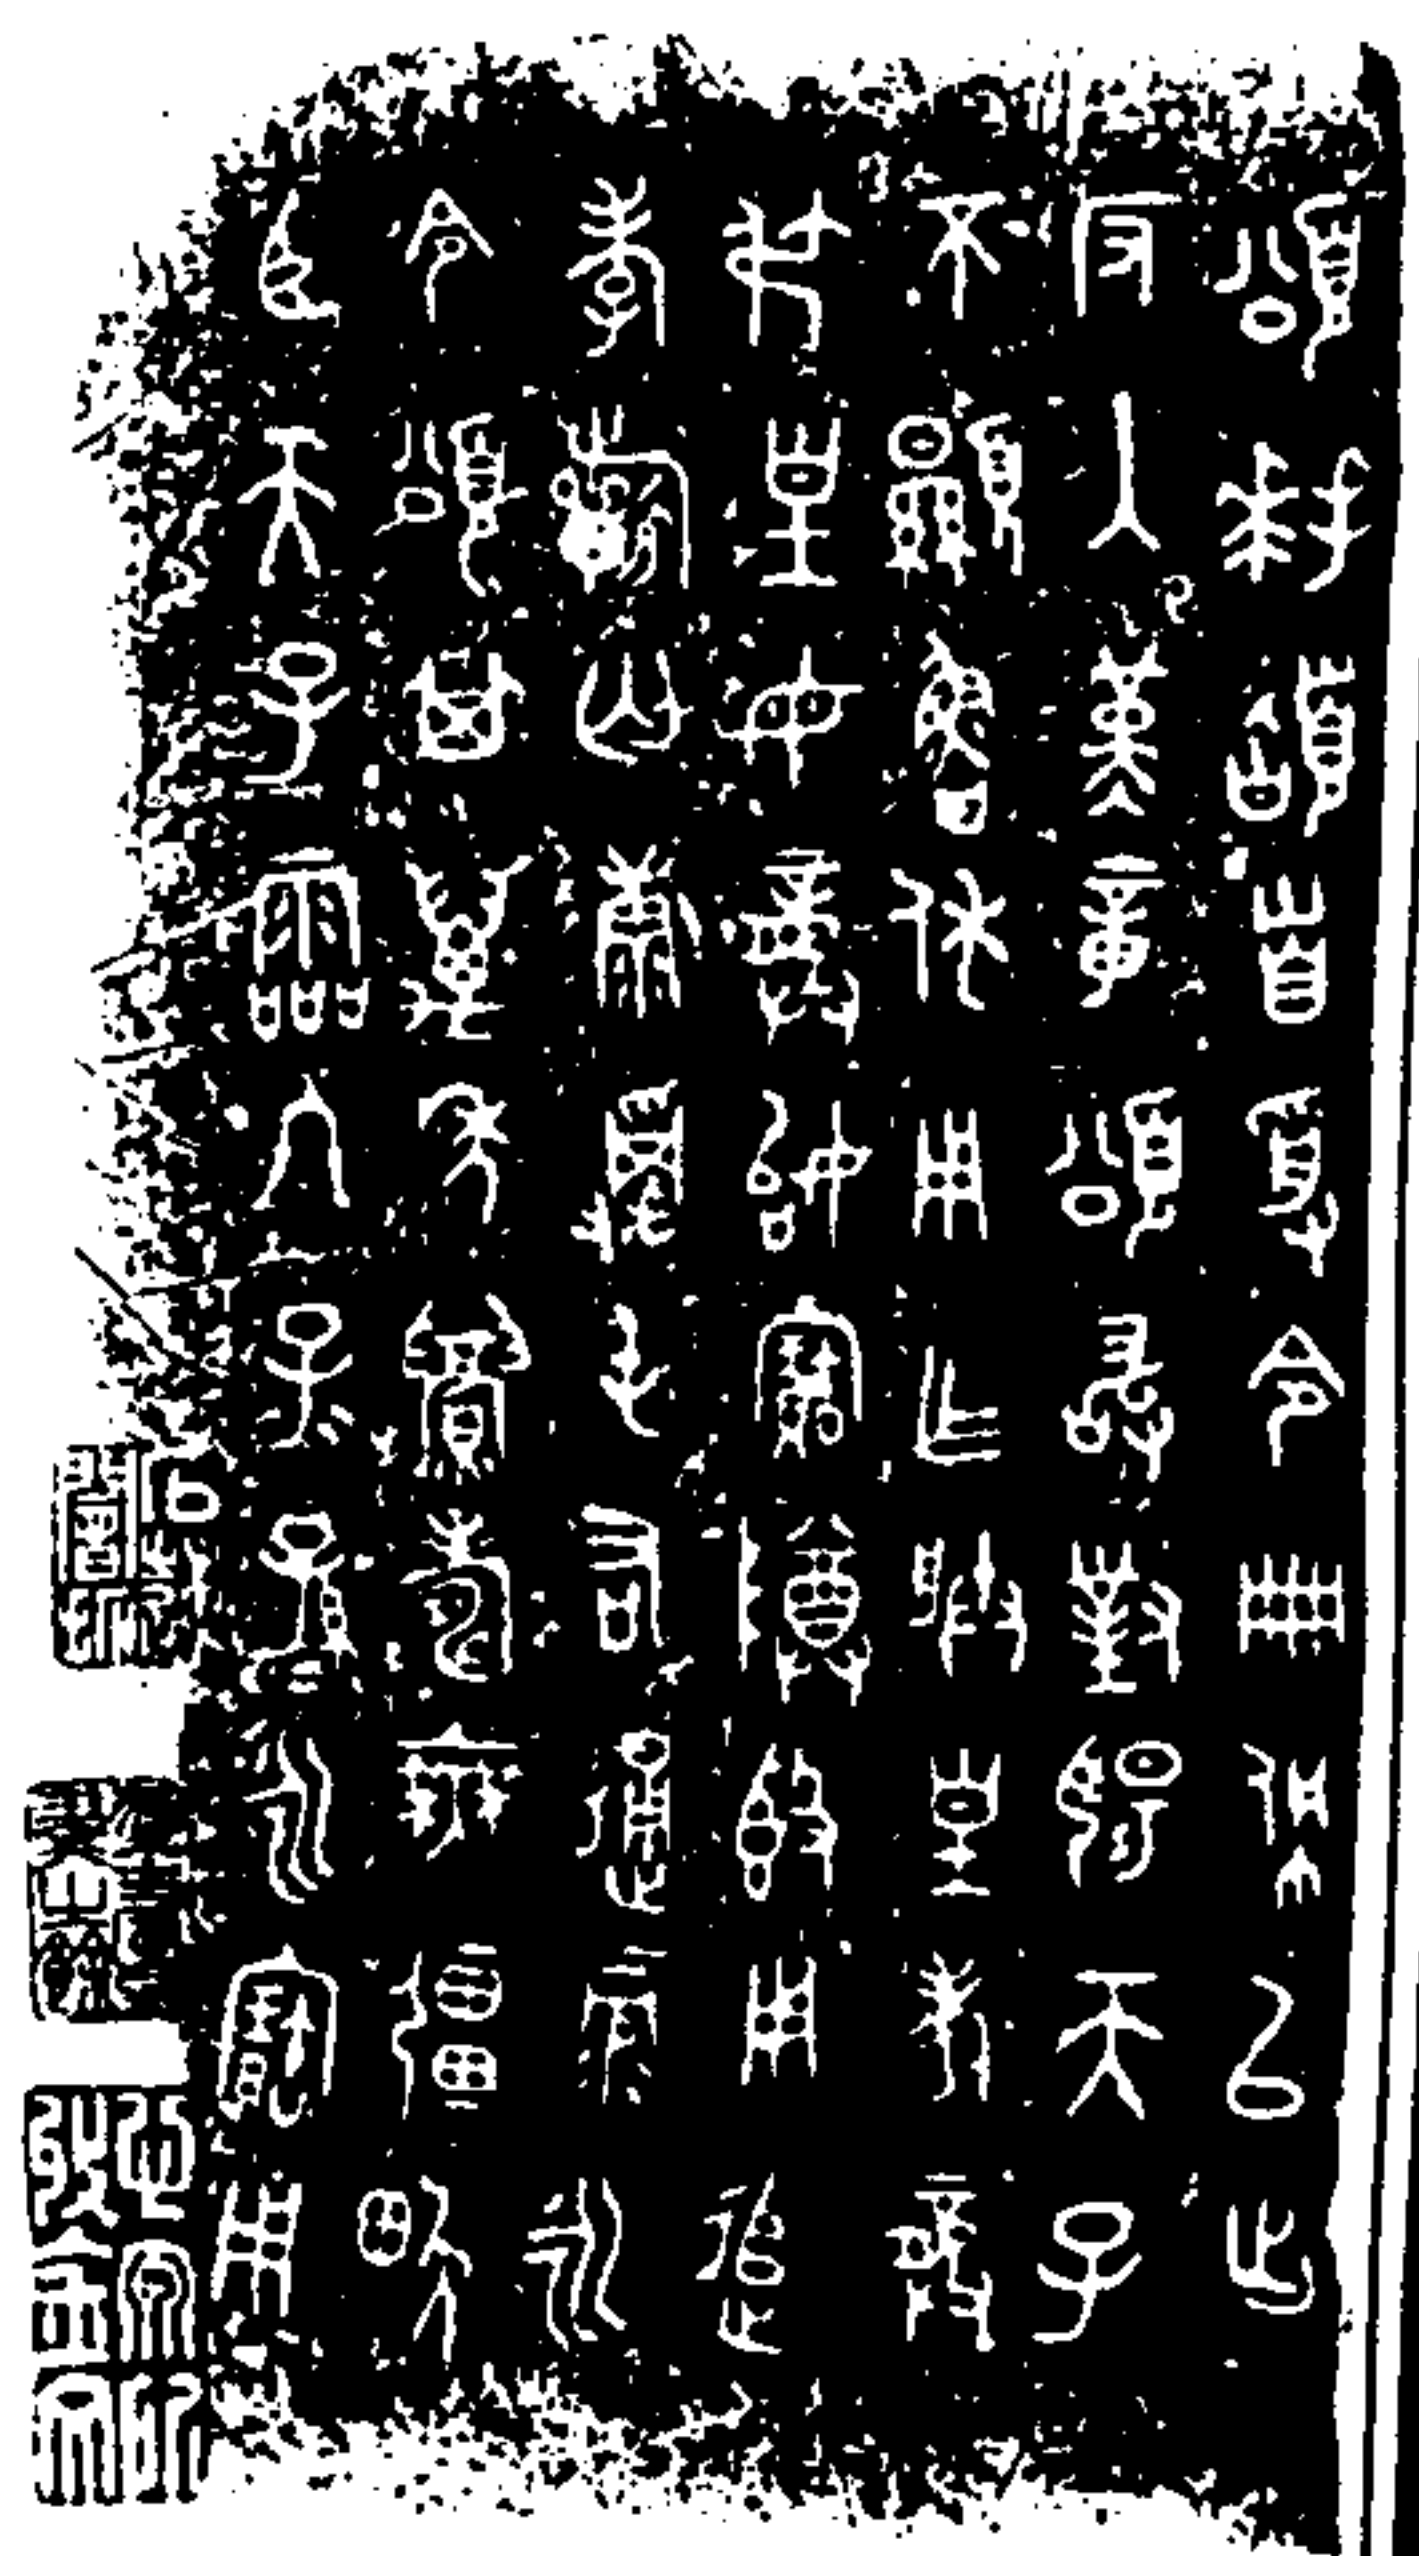 頌拜𩒨首受令冊佩以出
反入堇章頌敢對揚天子
不顯魯休用乍朕皇考龏
弔皇母龏始寶尊𣪘用追
孝𣄨匄康𩁹屯右通彔永
令頌其萬年眉壽無疆畯
臣天子霝冬子=孫=永寶用